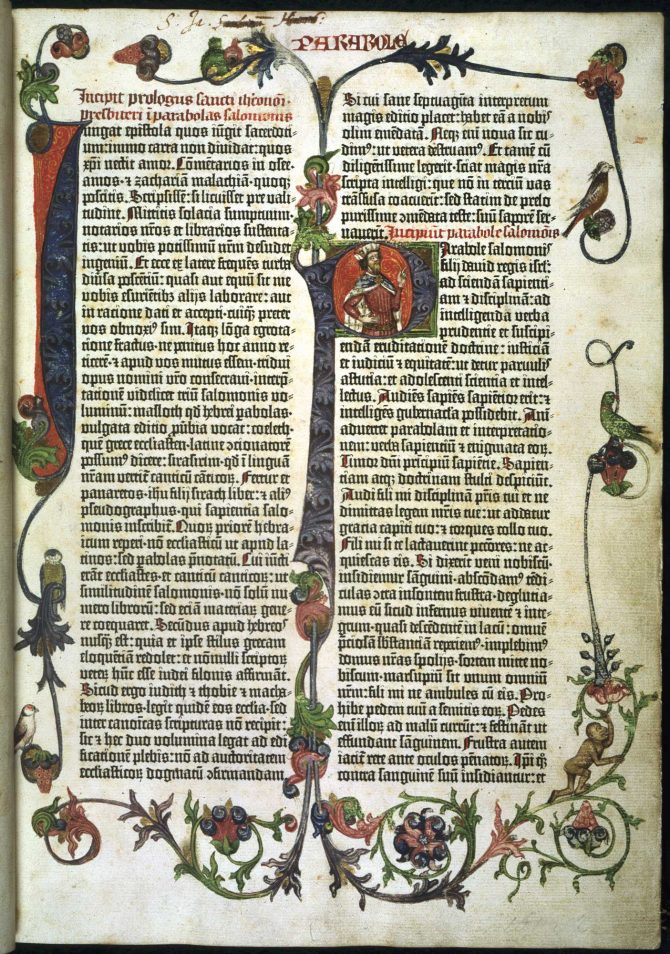 PARABOLE
Incipit prologus sancti iheronimi
presbiteri i parabolas salomonis
Iungat epistola quos iūgit sacerdoti-
um: immo carta non dividat: quos
xp̄i nectit amor. Cōmētarios in osee.
amos. ⁊ zachariā malachiā. quoqꝫ
poscitis. Scripsissē: si licuisset pre vali-
tudine. Mittitis solacia sumptuum.
notarios nr̄os et librarios sustenta-
tis: ut vobis potissimū nr̄m desudet
ingeniū. Et ecce ex latere freqūēs turba
diūsa poscētiū: quasi aut equū sit me
vobis esurietibꝫ alijs laborare: aut
in ratione dati et accepti. cuiqꝫ preter
vos obnoxiꝰ sim. Itaqꝫ lōga egrota-
tione fractus. ne penitus hoc anno re-
ticerē. ⁊ apud vos mutus essem. tridui
opus nomini vr̄o consecravi. interp̄-
tationē videlicet triū salomonis vo-
luminū: masloth qd̄ hebrei pabolas.
vulgata editio pūbia vocat: coeleth.
quē grece ecclīasten. latine ↄcionatorē
possumꝰ dicere: sirasirim. qd̄ ī linguā
nr̄am vertit̄ canticū cāticoꝝ. Fertur et
panaretos. ihu filij sirach liber: ⁊ aliꝰ
pseudographus. qui sapientia salo-
monis inscribit̄. Quoꝝ priorē hebra-
icum reperi. nō ecclīasticū ut apud la-
tinos: sed pabolas p̄notatū. Cui iūcti
erāt ecclīastes. et canticū canticoꝝ: ut
similitudinē salomonis. nō solū nu-
mero librorū: sed eciā materiaꝝ gene-
re coequaret. Secūdus apud hebreos
nusqꝫ est: quia et ipse stilus grecam
eloquētiā redolet: et nōnulli scriptoꝝ
veteꝝ hūc esse iudei filonis affirmāt.
Sicud ergo iudith ⁊ thobie ⁊ macha-
beoꝝ libros. legit quidē eos ecclīa. sed
inter canonicas scripturas nō recipit:
sic ⁊ hec duo volumina legat ad edi-
ficationē plebis: nō ad auctoritatem
ecclīasticoꝝ dogmatū ↄfirmandam.
Si cui sane septuaginta interpretum
magis editio placet: habet eā a nobis
olim emēdatā. Neqꝫ enī nova sic cu-
dimꝰ: ut vetera destruamꝰ. Et tamē cū
diligētissime legerit. sciat magis nr̄a
scripta intelligi: que nō in terciū vas
trāsfusa coacuerīt: sed statim de prelo
purissime ↄmēdata teste: suū saporē ser-
vaverīt. Incipiūt parabole salomonis
Parabole salomonis
filij david regis isrl̄:
ad sciendā sapienti-
am ⁊ disciplinā: ad
intelligenda verba
prudentie et suscipi-
endā eruditationē doctrine: iusticiā
et iudiciū ⁊ equitatē: ut detur parvulis
astutia: et adolescenti scientia et intel-
lectus. Audiēs sapiēs sapiētior erit: ⁊
intelligēs gubernacla possidebit. Ani-
advertet parabolam et interpretatio-
nem: verba sapientiū ⁊ enigmata eoꝝ.
Timor dn̄i principiū sapiētie. Sapien-
tiam atqꝫ doctrinam stulti despiciūt.
Audi fili mi disciplinā pr̄is tui et ne
dimittas legem mr̄is tue: ut addatur
gracia capiti tuo: ⁊ torques collo tuo.
Fili mi si te lactaverint pctōres: ne ac-
quiescas eis. Si dixerit veni nobiscū.
insidiemur sāguini. abscōdamꝰ tēdi-
culas ↄtra insontem frustra. degluttia-
mus eū sicud infernus viventē ⁊ inte-
grum. quasi descēdētē in lacū: omnē
p̄ciosā sb̄stantiā reperiemꝰ. implebimꝰ
domus nr̄as spolijs. sortem mitte no-
biscum. marsupiū sit unum omniū
nr̄m: fili mi ne ambules cū eis. Pro-
hibe pedem tuū a semitis eoꝝ. Pedes
enī illoꝝ ad malū currūt: ⁊ festināt ut
effundant sāguinem. Frustra autem
iacit̄ rete ante oculos pēnatoꝝ. Ipi qꝫ
contra sanguinē suū insidiantur: et